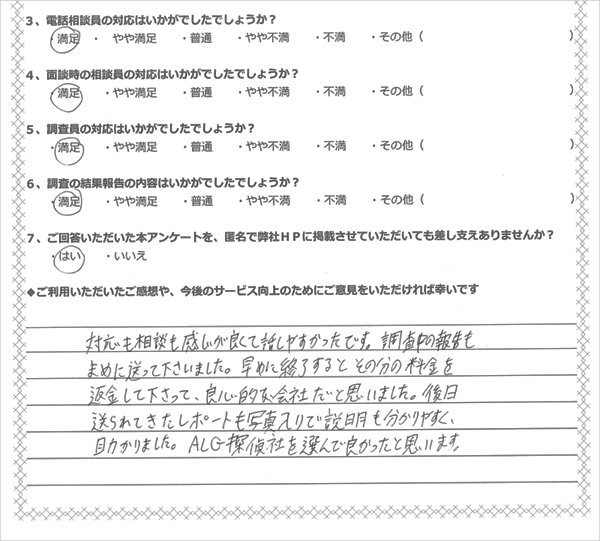 3、電話相談員の対応はいかがでしたでしょうか?
・満足 ・ やや満足 ・普通 ・やや不満 ・不満 ・その他( )
4、面談時の相談員の対応はいかがでしたでしょうか?
・満足 ・やや満足 ・普通 ・やや不満 ・不満 ・その他( )
5、調査員の対応はいかがでしたでしょうか?
・満足 ・やや満足 ・普通 ・やや不満 ・不満 ・その他( )
6、調査の結果報告の内容はいかがでしたでしょうか?
・満足 ・やや満足 ・普通 ・やや不満 ・不満 ・その他( )
7、ご回答いただいた本アンケートを、匿名で弊社HPに掲載させていただいても差し支えありませんか?
・はい ・いいえ
◆ご利用いただいたご感想や、今後のサービス向上のためにご意見をいただければ幸いです
対応も相談も感じが良くて話しやすかったです。調査中の報告も
まめに送って下さいました。早めに終了するとその分の料金を
返金して下さって、良心的な会社だと思いました。後日
送られてきたレポートも写真入りで説明も分かりやすく、
助かりました。ALG探偵社を選んで良かったと思います。